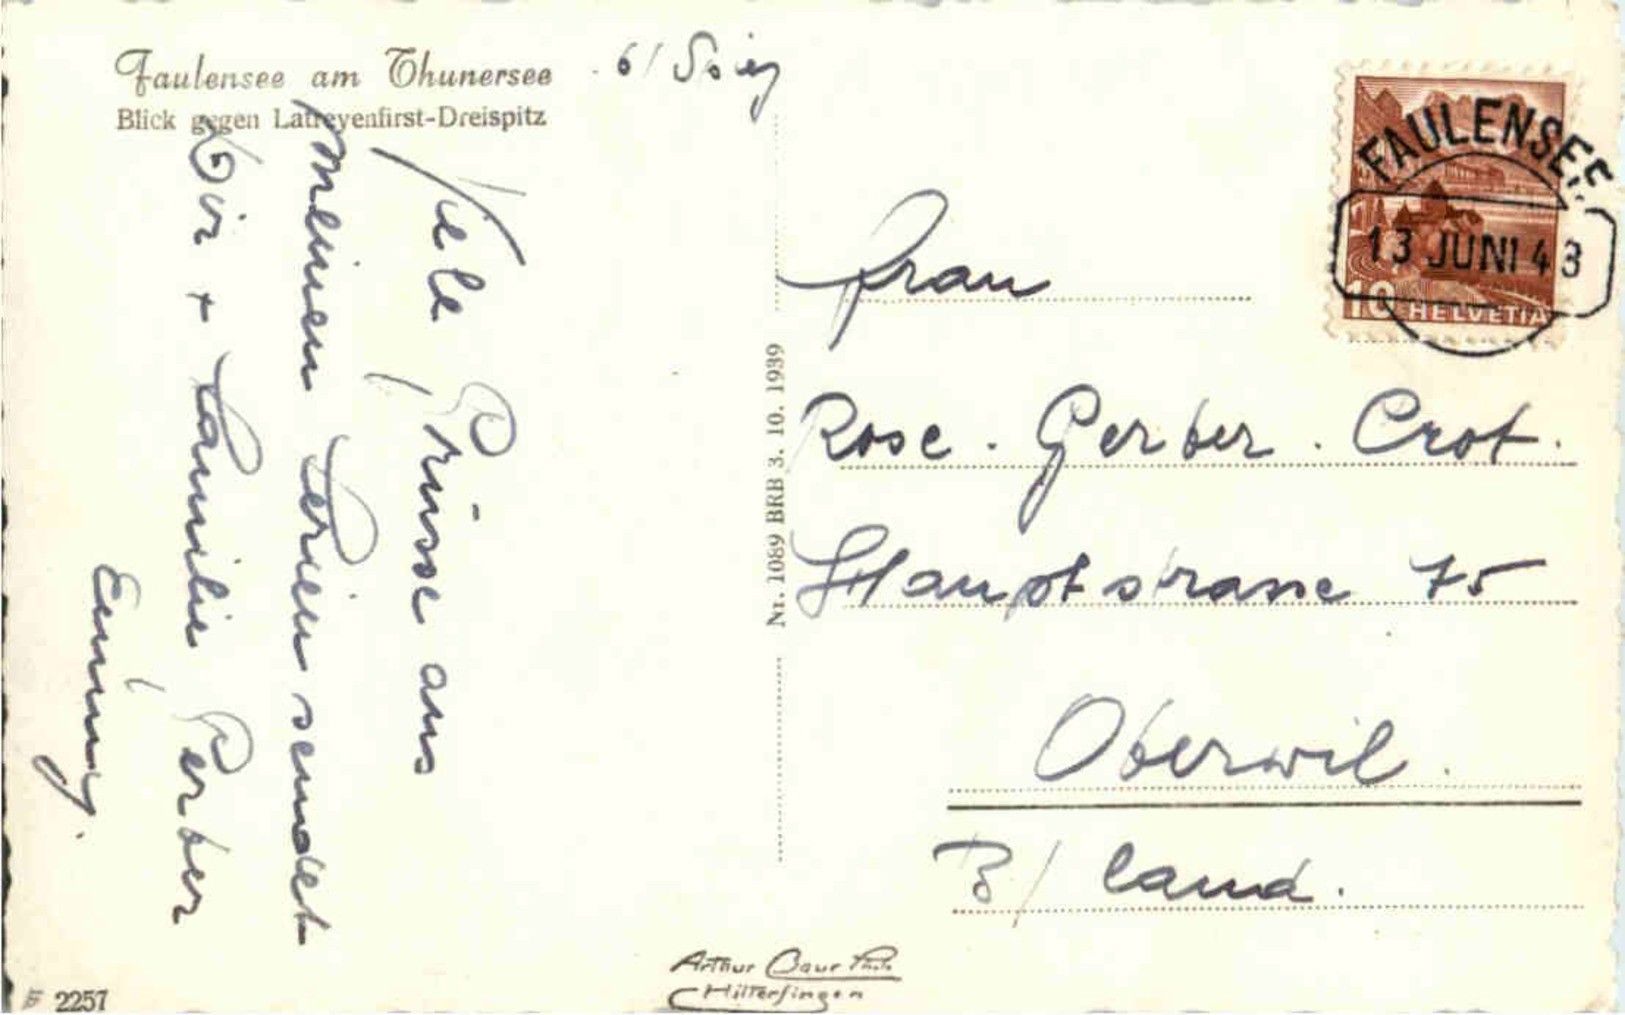 Faulensee am Thunersee
Blick gegen Latreyenfirst-Dreispitz
b/ Spiez
Viele Grüsse aus
meinen Ferien sendet
Dir + Familie Gerber
Emmy.
Nr. 1089 BRB 3. 10. 1939
FAULENSEE
13 JUNI 43
10 HELVETIA
Frau
Rose. Gerber. Crot.
Hauptstrasse 75
Oberwil.
B/ Land.
Arthur Baur Photo
Hilterfingen
2257